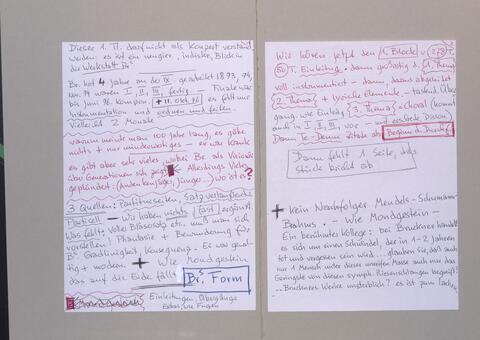 Dieser 1. T. darf nicht als Konzert verstand.
werden: es ist ein neugier., indiskr. Blick in
die Werkstatt Br's
Br. hat 4 Jahre an der IX. gearbeitet 1893, 94,
waren I, II, III, fertig – Finale war
bis Juni 96 kompon. + 11. Okt. 96 es fehlt nur
Instrumentation und ordnen und feilen.
Vielleicht 2 Monate
warum meinte man 100 Jahre lang, es gäbe
nichts + nur minderwertiges – er war krank
es gibt aber sehr vieles, wobei Br. als Visionär
über Generationen sich zeigt Allerdings Vieles
geplündert: (Andenkenjäger, Jünger...) wo ist es?
3 Quellen: Partiturseiten, Satzverlaufsskizze
Particell – Wir haben nichts (fast) ergänzt.
Was fehlt: voller Bläsersatz etc. muß man sich
vorstellen! Phantasie + Bewunderung für
B's. Gradlinigkeit, Konsequenz. Es war genial-
tig + modern + Wie Mondgestein
das auf die Erde fällt
Br's Form
Einleitungen, Übergänge
Wir hören jetzt den 1. Block v. (278) T.
50 T. Einleitung, dann großartig d. 1. Thema
voll instrumentiert – dann, daraus abgeleitet
2. Thema + lyrische Elemente – tastend. Über
gang wie Einleitg 3. Thema = Choral (kommt
auch in I, II, III, vor –
Dann Te-Deum Zitate als Beginn d. Durchf.
Dann fehlt 1 Seite, das
Stück bricht ab
+ kein Nachfolger Mendels-Schumann-
Brahms. – Wie Mondgestein –
Ein berühmter Kollege: bei Bruckner handelt
es sich um einen Schwindel, der in 1-2 Jahren
tot und vergessen sein wird... glauben Sie, daß auch
nur 1 Mensch unter dieser Masse auch nur das
Geringste von diesen symph. Riesenschlangen begreift?
...Bruckners Werke unsterblich? es ist zum lachen